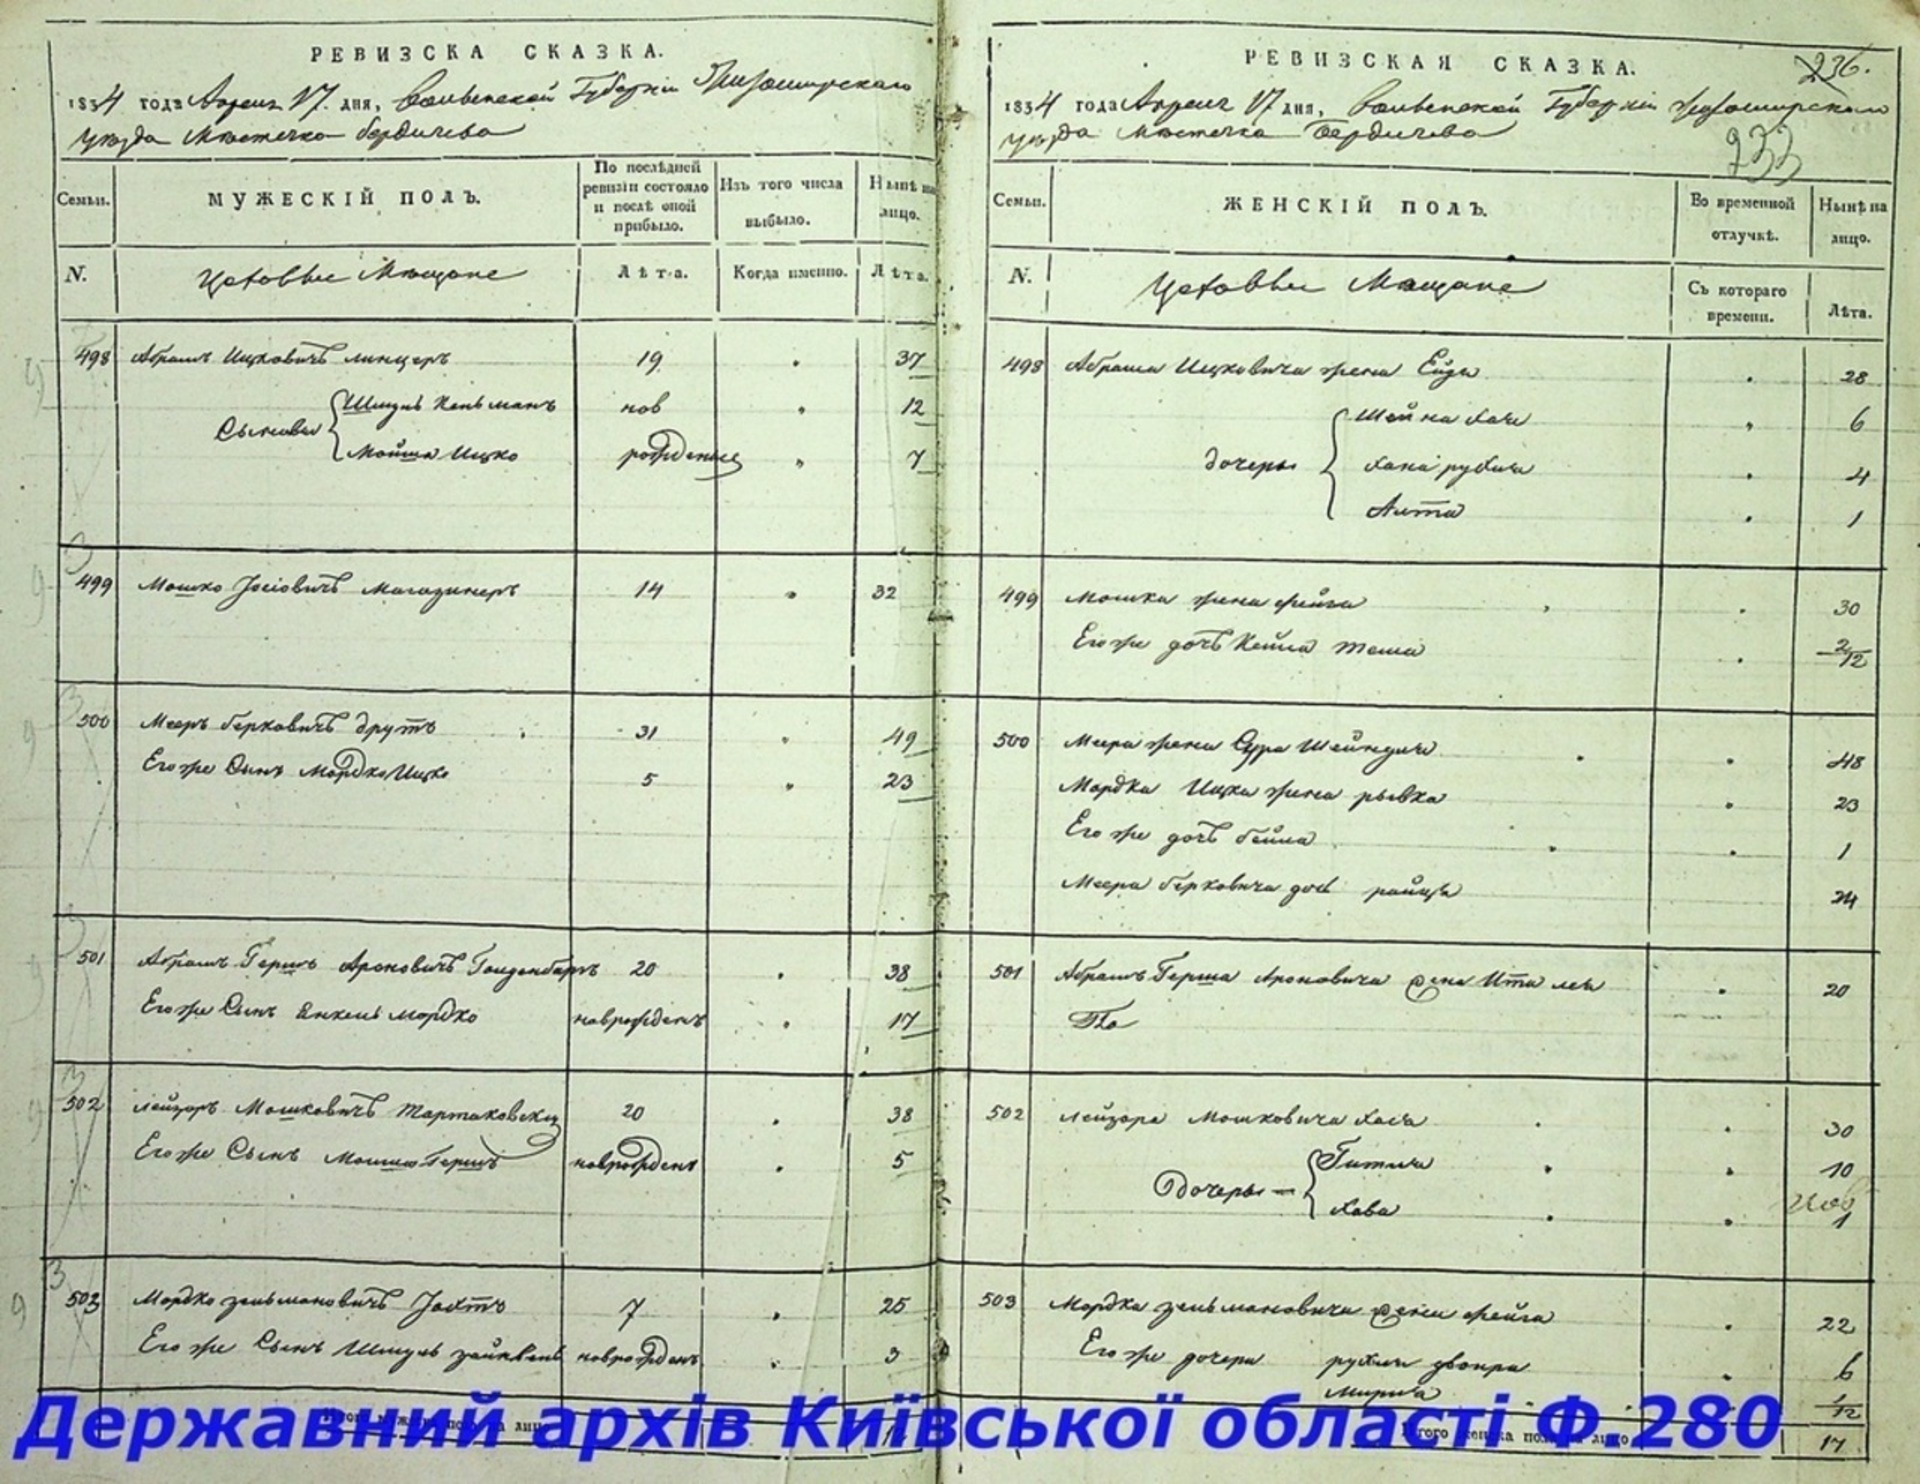 РЕВИЗСКА СКАЗКА.
1834 года Апреля 17. дня, Волынской Губерніи Житомирскаго
уѣзда Мѣстечка Бердичева
Семьи.
МУЖЕСКІЙ ПОЛЪ.
По послѣдней ревизіи состояло и послѣ оной прибыло.
Изъ того числа выбыло.
Нынѣ на лицо.
N.
Лѣта.
Когда именно.
Лѣта.
498 Абрамъ Ицковичъ Линцеръ 19 37
Сыновья Шмуль Кельманъ нов 12
Мойша Ицко рожденные 7
499 Мошко Јосіовичъ Магазинеръ 14 32
500 Мееръ Берковичъ Друтъ 31 49
Его же Сынъ Мордко Ицко 5 23
501 Абрамъ Гершъ Ароновичъ Голденбаръ 20 38
Его же Сынъ Янкель Мордко новрожденъ 17
502 Лейзоръ Мошковичъ Тартаковскій 20 38
Его же Сынъ Мошко Гершъ новрожденъ 5
503 Мордко Зельмановичъ Јохтъ 7 25
Его же Сынъ Шмуль новрожденъ 3
РЕВИЗСКАЯ СКАЗКА.
236.
1834 года Апреля 17 дня, Волынской Губерніи Житомирскаго
уѣзда Мѣстечка Бердичева
233
Семьи.
ЖЕНСКІЙ ПОЛЪ.
Во временной отлучкѣ.
Нынѣ на лицо.
N.
Съ котораго времени.
Лѣта.
498 Абрама Ицковича жена Ейдя 28
Шейна Хая 6
дочеры Хана Рухля 4
Алта 1
499 Мошка жена Фейга 30
Его же дочь Кейла 2/12
500 Меера жена Сура Шейндля 48
Мордка Ицка жена Рывка 23
Его же дочь Бейла 1
Меера Берковича доч Райця 24
501 Абрамъ Герша Ароновича жена Ита Лея 20
502 Лейзора Мошковича Хася 30
Дочеры Гитля 10
Хава 1
503 Мордка Зельмановича жена Фейга 22
Его же дочери Рухля Двойра 6
Мирля 1/12
17
Державний архів Київської області Ф.280